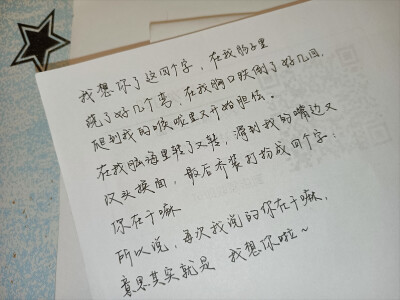 我想你了这四个字，在我肠子里
绕了好几个弯，在我胸口跌倒了好几回，
爬到我的喉咙里又开始胆怯。
在我脑海里转了又转，滑到我的嘴边又
改头换面，最后乔装打扮成四个字：
你在干嘛
所以说，每次我说的你在干嘛，
意思其实就是 我想你啦~